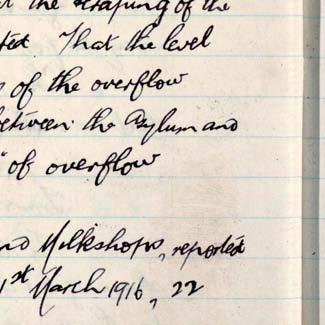 the scraping of the
ted That the level
of the overflow
between the Asylum and
of overflow
nd Milkshops, reported
1st March 1916, 22